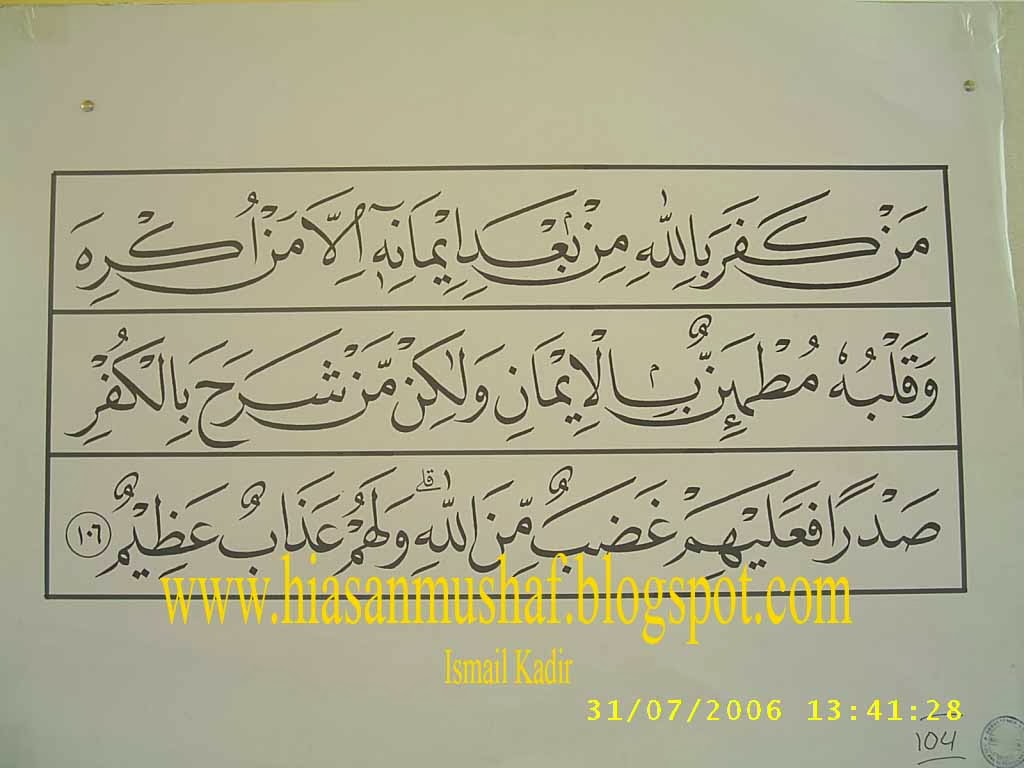 مَنْ كَفَرَ بِاللَّهِ مِنْ بَعْدِ إِيمَانِهِ إِلَّا مَنْ أُكْرِهَ
وَقَلْبُهُ مُطْمَئِنٌّ بِالْإِيمَانِ وَلَٰكِنْ مَّنْ شَرَحَ بِالْكُفْرِ
صَدْرًا فَعَلَيْهِمْ غَضَبٌ مِّنَ اللَّهِ ۖ وَلَهُمْ عَذَابٌ عَظِيمٌ ١٠٦
www.hiasanmushaf.blogspot.com
Ismail Kadir
31/07/2006 13:41:28
104